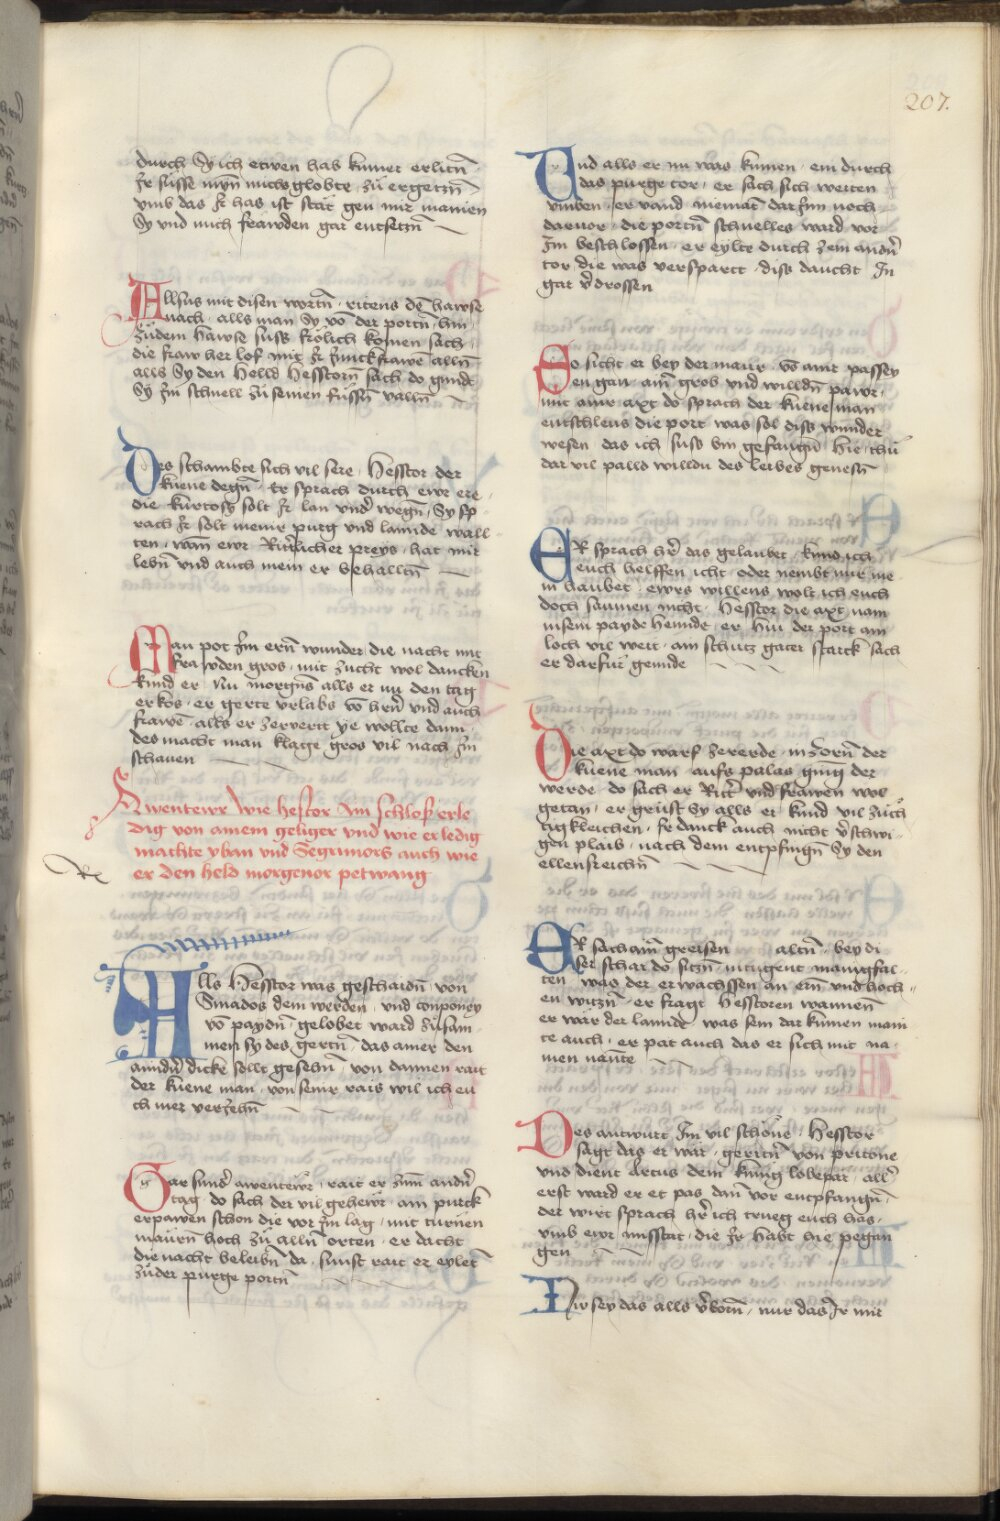 207.
durch Sy ich etwen hab kumer erlitñ
Jr süsse myñ mich globte zü ergetzñ
vmb das Jr has ist stät gen mir manien
Sy vnd mich frawden gar entsetzñ
Allsus mit disen wortñ ritens dẽ hawse
nach alls man Sy võ der portñ hin
züdem hawse suss frölich komen sach
die fraw her lof mit Jr Junckfrawe allñ
alls Sy den Helld Hesstorñ sach do gundt
Sy Jm schnell zü seinen füssñ vallñ
Des schambte sich vil sere Hesstor der
küene degñ Er sprach durch ewr ere
die kurtosy solt Jr lan vnd wegñ Sy sp
rach Jr solt meinr purg vnd lannde wall
ten wañ ewr Ritterlicher preys hat mir
lebñ vnd auch mein er behalltñ
Man pot Jm erñ wunder die nacht mit
frawden gros mit zücht wol dancken
kund er Nu morgñs alls er nu den tag
erkos er gerte vrlabs võ herñ vnd auch
frawẽ alls er zervertt ye wollte dann
des macht man klage gros vil nach Jm
schawen
Awentewr wie hestor ym schloss erle
dig von ainem geliger vnd wie er ledig
machte yban vnd Segrimors auch wie
er den held morgenor petwang
Alls Hesstor was geschaidñ von
Sinados dem werden vnd conponey
võ paydñ gelobet ward züsam
men sy des gertñ das ainer den
anndñ dicke sollt gesehñ von dannen rait
der küene man von seinr rais wil ich eu
ch mer verJehñ
Gar sunder awentewr rait er Jnn andñ
tag do sach der vil gehewr ain purck
erpawen schon die vor Jm lag mit turnen
maurñ hoch zü allñ orten er dacht
die nacht beleibñ da sunst rait er eylet
züder purge portñ
Vnd alls er nu was kumen ein durch
das purge tor er sach sich weiten
vmben er vand niemãt dar Jnn noch
daruor die portñ schnelles ward vor
Jm beschlossen er eylte durch zem andñ
tor die was versparct diss daucht Jn
gar v̄drossen
So sicht er bey der maur võ ainr passey
en gan ainñ grob vnd willdñ pawr
mit ainr axt do sprach der küene man
entschleus die port was sol diss wunder
wesen das ich suss bin gefangñ hie thü
dar vil palld willdu des leibes genesñ
Er sprach hr̃ das gelaubet kund ich
euch helffen icht oder nembt mir me
in haubet ewrs willens wolt ich euch
doch saumen nicht Hesstor die axt nam
in sein payde hennde er hiu der port ain
loch vil weit ain schutz gater starck sach
er darfür gennde
Die axt do warf zererde in zorñ der
küene man aufs palas ging der
werde do sach er Rittr̃ vnd frawen wol
getan er grüst Sy alls er kund vil züch
tigkleichen Jr danck auch nicht v̄schwi
gen plaib nach dem entpfingñ Sy den
ellensreichñ
Er sach ainñ greisen altñ bey di
ser schar do sitzñ in tugent manigfal
ten was der erwachssen an erñ vnd hoch
en witzñ er fragt Hesstoren wannen
er wär der lannde was sein dar kumen main
te auch er pat auch das er sich mit na
men nante
Des antwurt Jm vil schöne Hesstor
sagt das er wär geritñ von pritone
vnd dient Artus dem künig lobepär allr̃
erst ward er et pas dañ vor entpfangñ
der wirt sprach hr̃ ich trueg euch has
vmb ewr missetat die Jr habt hie pegan
gen
Nw sey das alls v̄korñ nur das Jr mit